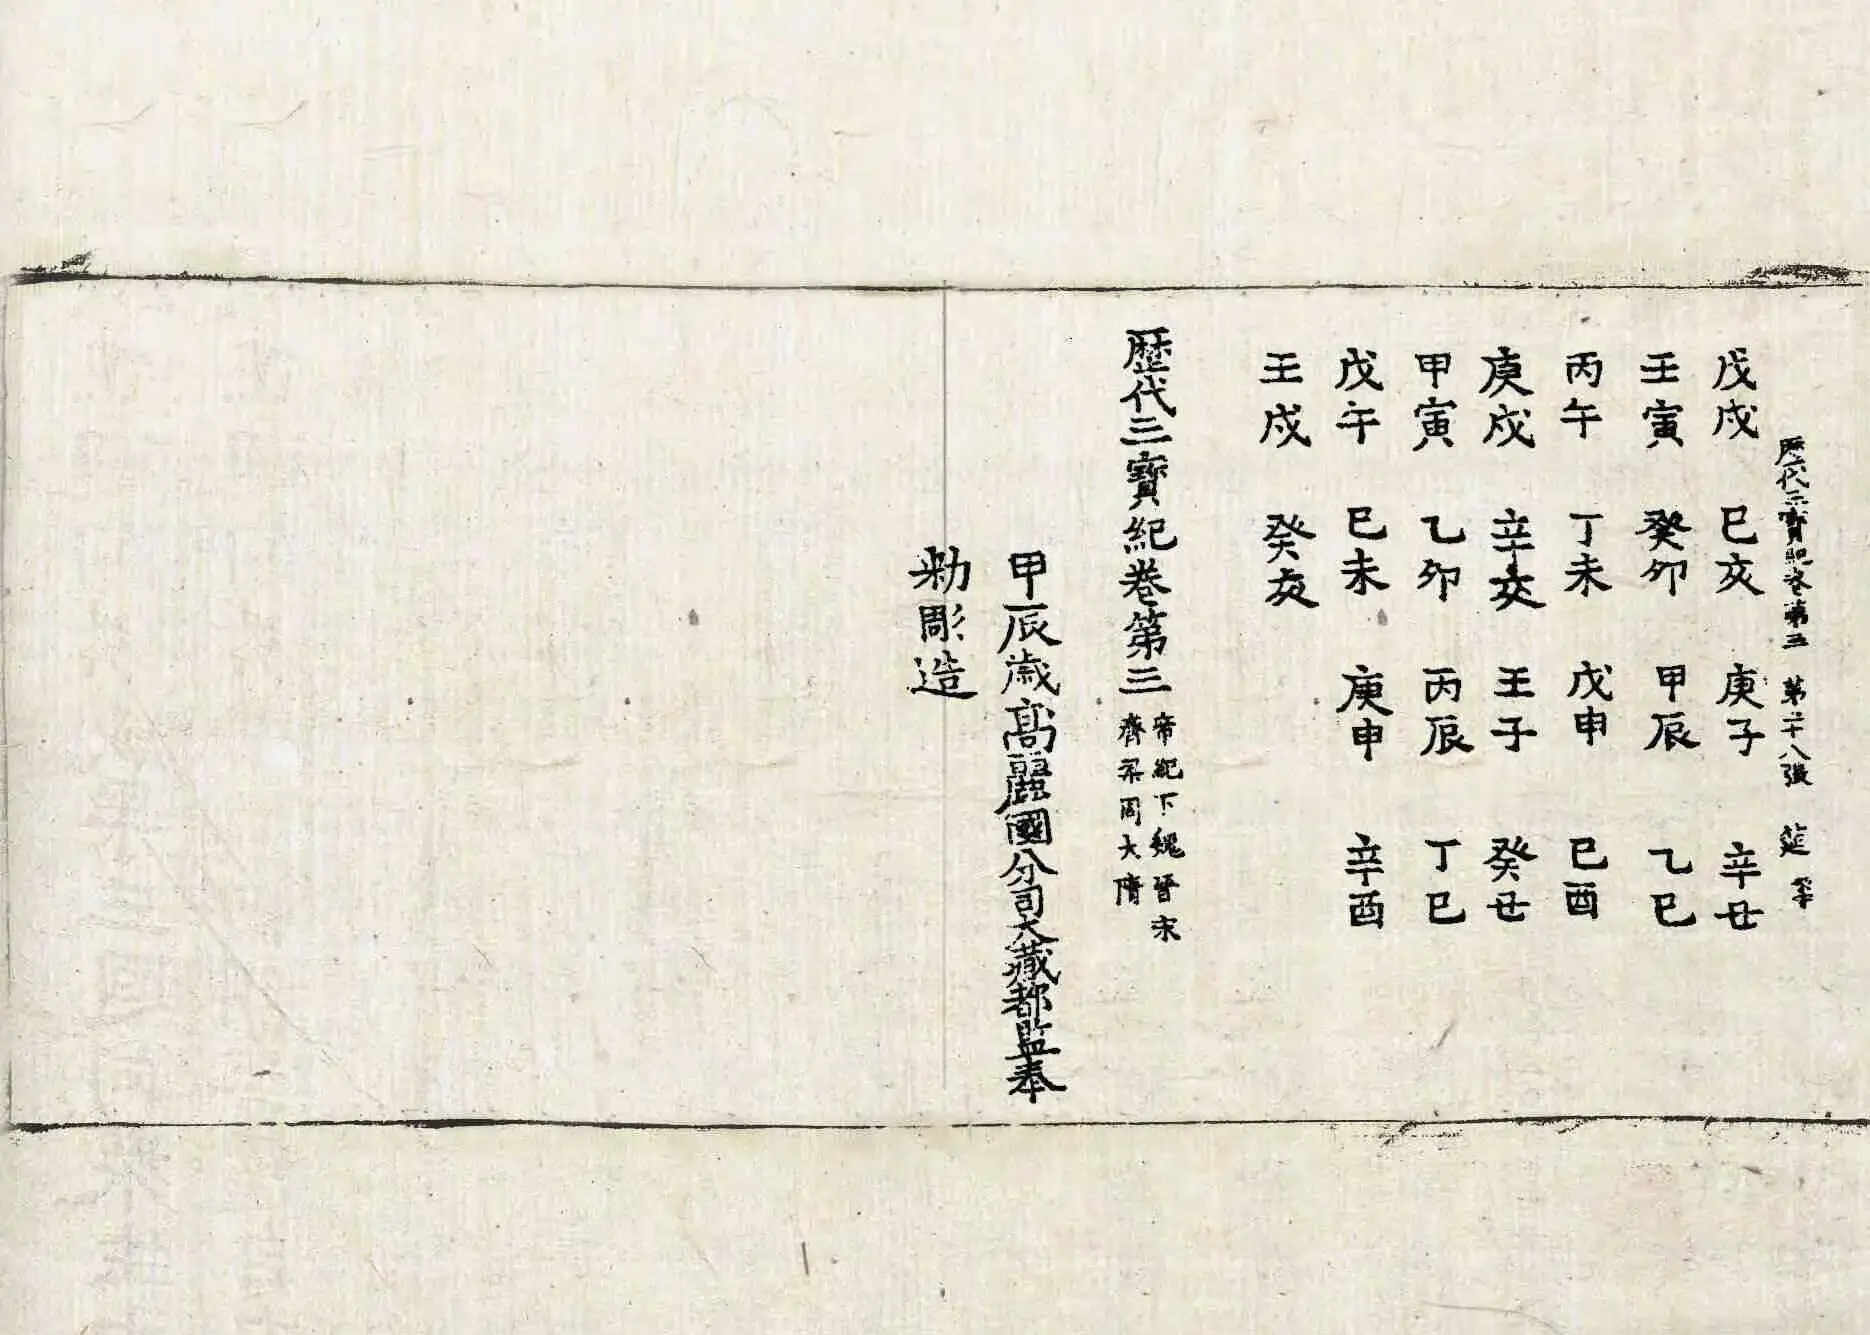 歷代三寶紀卷第三 第二十八張 莚
戊戌 己亥 庚子 辛丑
壬寅 癸卯 甲辰 乙巳
丙午 丁未 戊申 己酉
庚戌 辛亥 壬子 癸丑
甲寅 乙卯 丙辰 丁巳
戊午 己未 庚申 辛酉
壬戌 癸亥
歷代三寶紀卷第三
帝紀下魏晉宋
齊梁周大隋
甲辰歲高麗國分司大藏都監奉
勅彫造